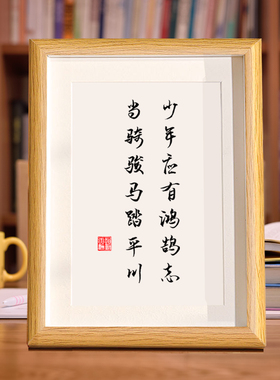 少年应有鸿鹄志
当骑骏马踏平川